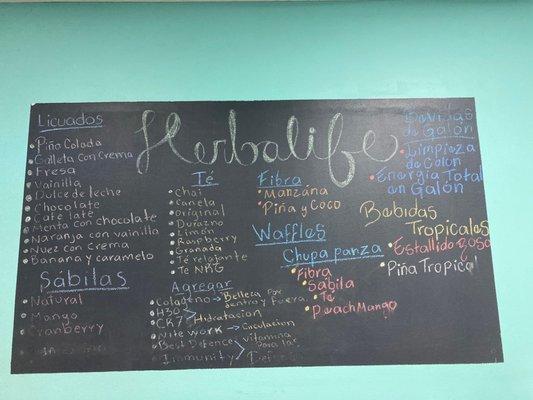 Herbalife
Licuados
Piña Colada
Galleta con Crema
Fresa
Vainilla
Dulce de leche
Chocolate
Cafe late
Menta con chocolate
Naranja con vainilla
Nuez con crema
Banana y caramelo
Sábilas
Natural
Mango
Cranberry
Té
Chai
Canela
Original
Durazno
Limón
Raspberry
Granada
Té relajante
Te NRG
Agregar
Colageno → Belleza por
dentro y fuera
H30
CK7 > Hidratacion
Nite work → Circulacion
Best Defence
Immunity > vitamina
para las
Fibra
Manzana
Piña y Coco
Waffles
Chupa panza
Fibra
Sabila
Té
PeachMango
Bebidas
de Galón
Limpieza
de Galon
Energia Total
en Galón
Bebidas
Tropicales
Estallido Goso
Piña Tropical